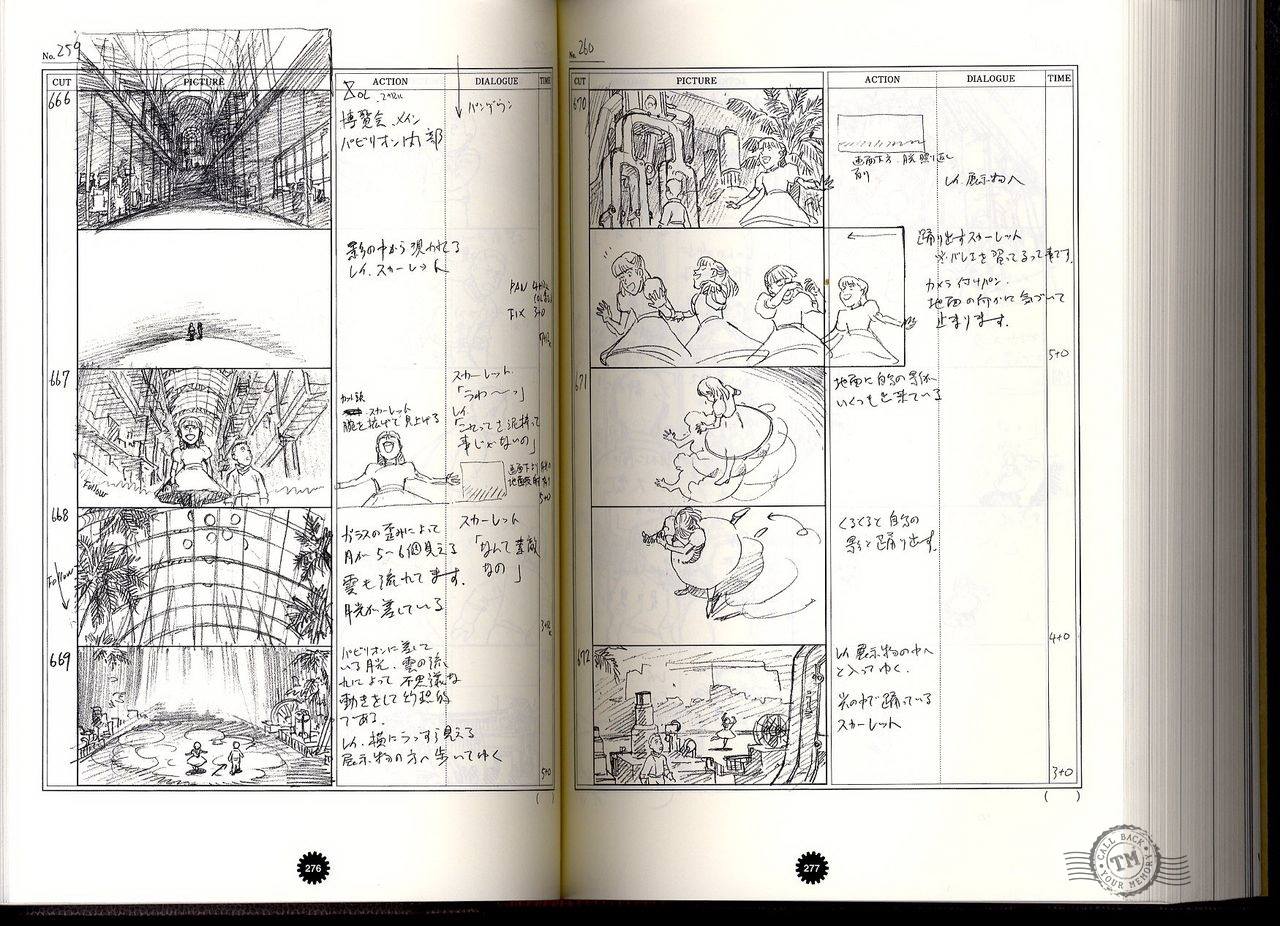 No. 259
CUT
PICTURE
ACTION
DIALOGUE
TIME
666
OL
博覧会メイン
パビリオン内部
パンダウン
影の中から現われる
レイ、スカーレット
PAN
FIX 3+0
667
Follow
スカーレット
腕を拡げて見上げる
スカーレット
「うわ〜っ」
レイ
「これってさ泥棒って
事じゃないの」
5+0
668
Follow
ガラスの歪みによって
月が5〜6個見える
雲も流れてます。
月光が差している
スカーレット
「なんて素敵
なの」
669
パビリオンに差して
いる月光、雲の流
れによって不思議な
動きをして幻想的
である。
レイ、横にうっすら見える
展示物の方へ歩いてゆく
5+0
( )
276
No. 260
CUT
PICTURE
ACTION
DIALOGUE
TIME
670
画面下方、床照り返し
有り
レイ展示物へ
踊り出すスカーレット
※バレエを習ってるって事です。
カメラ付けパン.
地面の何かに気づいて
止まります.
5+0
671
地面に自分の影が
いくつも出来ている
くるくると自分の
影と踊り出す。
4+0
672
レイ展示物の中へ
と入ってゆく.
光の中で踊っている
スカーレット
3+0
( )
277
CALL BACK
TM
YOUR MEMORY